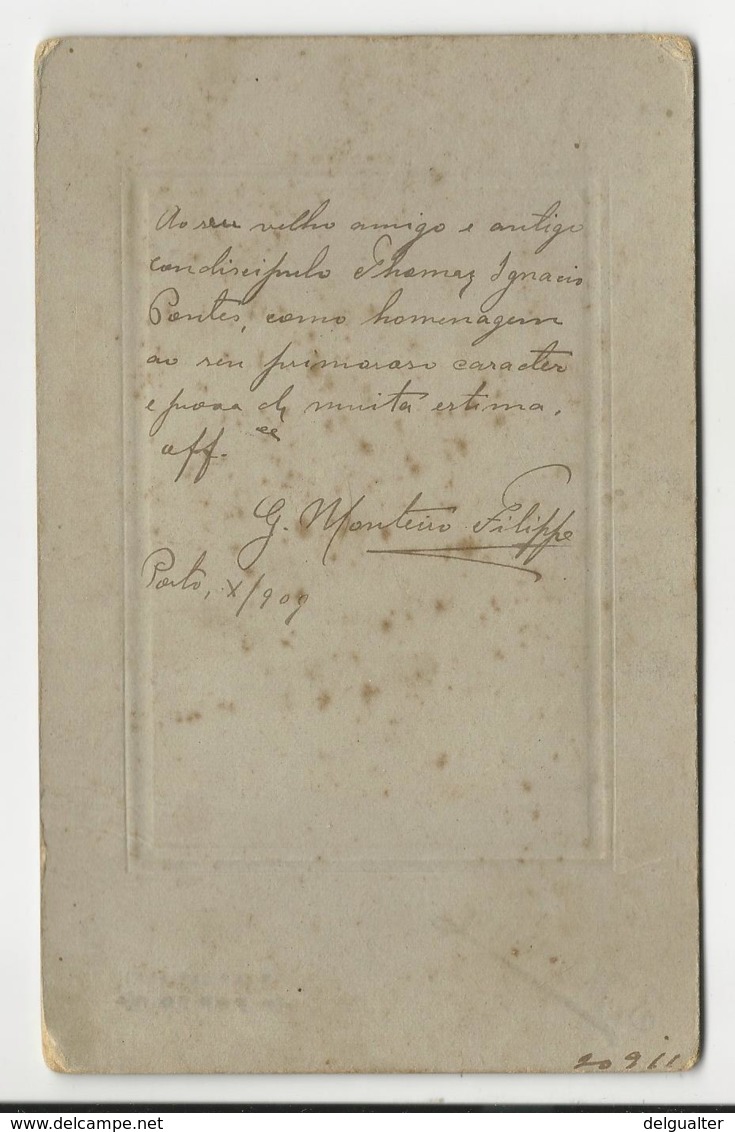 Ao seu velho amigo e antigo
condiscipulo Thomaz Ignacio
Pontes, como homenagem
ao seu primoroso caracter
e prova de muita estima.
aff.
G. Monteiro Filippe
Porto, X/909
20911
www.delcampe.net
delgualter